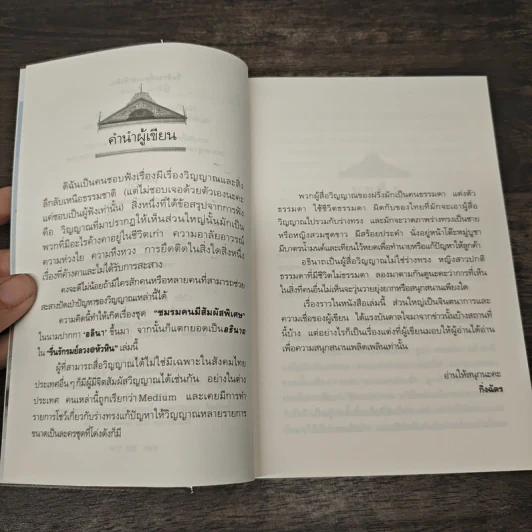 คำนำผู้เขียน
ดิฉันเป็นคนชอบฟังเรื่องผีเรื่องวิญญาณและสิ่ง
ลึกลับเหนือธรรมชาติ (แต่ไม่ชอบเจอด้วยตัวเองนะคะ
แค่ชอบเป็นผู้ฟังเท่านั้น) สิ่งหนึ่งที่ได้ข้อสรุปจากการฟัง
คือ วิญญาณที่มาปรากฏให้เห็นส่วนใหญ่นั้นมักเป็น
พวกที่มีอะไรค้างคาอยู่ในชีวิตเก่า ความอาลัยอาวรณ์
ความห่วงใย ความหึงหวง การยึดติดในสิ่งใดสิ่งหนึ่ง
เรื่องที่ค้างคาและไม่ได้รับการสะสาง
คงจะดีไม่น้อยถ้ามีใครสักคนหรือหลายคนที่สามารถช่วย
สะสางปัดเป่าปัญหาของวิญญาณเหล่านี้ได้
ความคิดนี้ทำให้เกิดเรื่องชุด "ชมรมคนมีสัมผัสพิเศษ"
ในนามปากกา 'อลินา' ขึ้นมา จากนั้นก็แตกยอดเป็นอธินาถ
ใน "รื่นรักรมย์ลวง@หัวหิน" เล่มนี้
ผู้ที่สามารถสื่อวิญญาณได้ไม่ใช่มีเฉพาะในสังคมไทย
ประเทศอื่นๆ ก็มีผู้มีจิตสัมผัสวิญญาณได้เช่นกัน อย่างในต่าง
ประเทศ คนเหล่านี้ถูกเรียกว่า Medium และเคยมีการทำ
รายการโชว์เกี่ยวกับร่างทรงแก้ปัญหาให้วิญญาณหลายรายการ
ขนาดเป็นละครชุดที่โด่งดังก็มี
พวกผู้สื่อวิญญาณของฝรั่งมักเป็นคนธรรมดา แต่งตัว
ธรรมดา ใช้ชีวิตธรรมดา ผิดกับของไทยที่มักจะเอาผู้สื่อ
วิญญาณไปรวมกับร่างทรง และมักจะวาดภาพร่างทรงเป็นชาย
หรือหญิงสวมชุดขาว มีสร้อยประคำ นั่งอยู่หน้าโต๊ะหมู่บูชา
มีบาตรน้ำมนต์และเทียนไว้หยดเพื่อทำนายหรือแก้ปัญหาให้ลูกค้า
อธินาถเป็นผู้สื่อวิญญาณไม่ใช่ร่างทรง หญิงสาวปกติ
ธรรมดาที่มีชีวิตไม่ธรรมดา ลองมาตามกันดูนะคะว่าการที่เห็น
ในสิ่งที่คนอื่นไม่เห็นจะวุ่นวายยุ่งยากหรือสนุกสนานเพียงใด
เรื่องราวในหนังสือเล่มนี้ ส่วนใหญ่เป็นจินตนาการและ
ความเชื่อของผู้เขียน ได้แรงบันดาลใจมาจากข่าวนั้นบ้างสถานที่
นี้บ้าง แต่อย่างไรก็เป็นเรื่องแต่งที่ผู้เขียนมอบให้ผู้อ่านได้อ่าน
เพื่อความสนุกสนานเพลิดเพลินเท่านั้น
อ่านให้สนุกนะคะ
กิ่งฉัตร